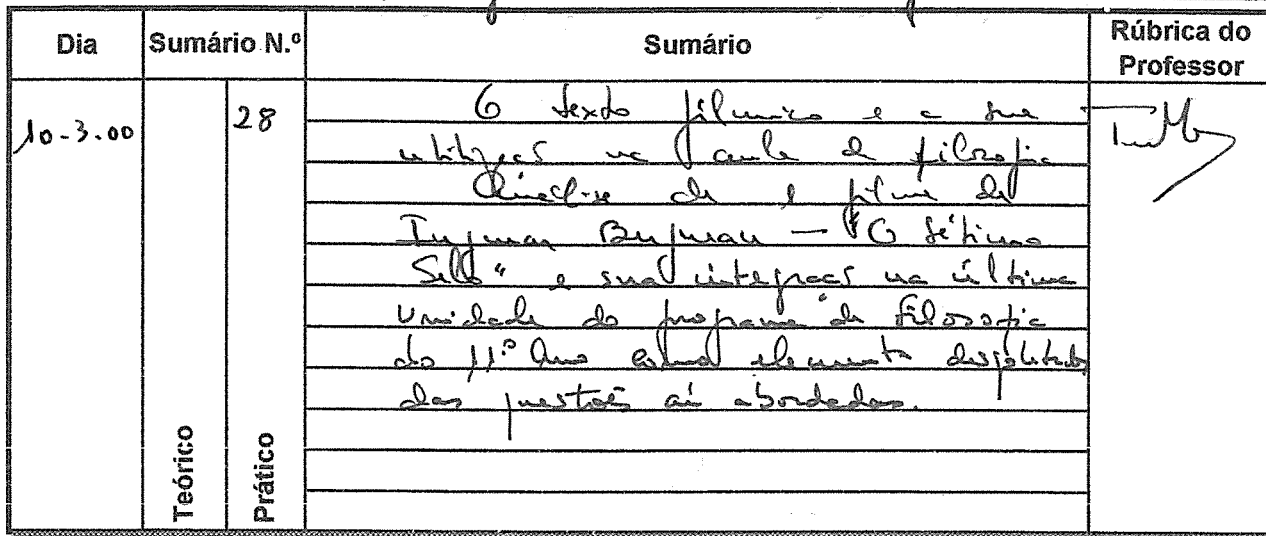 Dia Sumário N.º Sumário Rúbrica do Professor
10-3.00 28 O texto fílmico e a sua
utilização na aula de filosofia
Análise de filme de
Ingmar Bergman — "O Sétimo
Selo" e sua integração na última
Unidade do programa de Filosofia
do 11º Ano como elemento despoletador
das questões aí abordadas.
Teórico
Prático